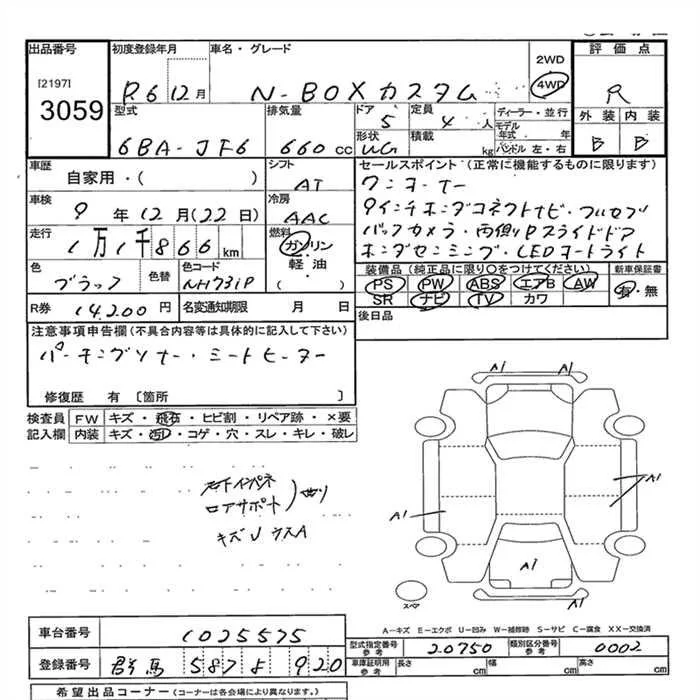 出品番号 初度登録年月 車名・グレード 2WD 評価点
[2197] R6 12月 N-BOXカスタム 4WD R
3059 型式 排気量 ドア 5 定員 4人 ディーラー・並行 外装 内装
6BA-JF6 660cc 形状 VG 積載 kg モデル年式 年 ハンドル 左・右 B B
車歴 自家用・( ) シフト AT セールスポイント (正常に機能するものに限ります)
車検 9年12月(22日) 冷房 AAC ワンオーナー
9インチホンダコネクトナビ・フルセグ
走行 1万1千866km 燃料 ガソリン 軽・油 ( ) バックカメラ・両側Pスライドドア
ホンダセンシング・LEDオートライト
色 ブラック 色替 色コード NH731P 装備品 (純正品に限り○をつけてください) 新車保証書
PS PW ABS エアB AW 有・無
SR ナビ TV カワ
R券 14,200円 名変通知期限 月 日 後日品
注意事項申告欄 (不具合内容等は具体的に記入して下さい)
パーキングセンサー・シートヒーター
修復歴 有 [箇所 ]
検査員 FW キズ・飛石・ヒビ割・リペア跡・×要
記入欄 内装 キズ・汚れ・コゲ・穴・スレ・キレ・破レ
A1 A1
A1 A1
A1
インパネ
ロアサポート
キズ ウスA
スペア
A-キズ E-エクボ U-凹み W-補修跡 S-サビ C-腐食 XX-交換済
車台番号 1025575
型式指定番号 参考 20750 類別区分番号 参考 0002
登録番号 群馬 587 920
車庫証明用 参考 長さ cm 幅 cm 高さ cm
希望出品コーナー (コーナーは各会場により異なります。)